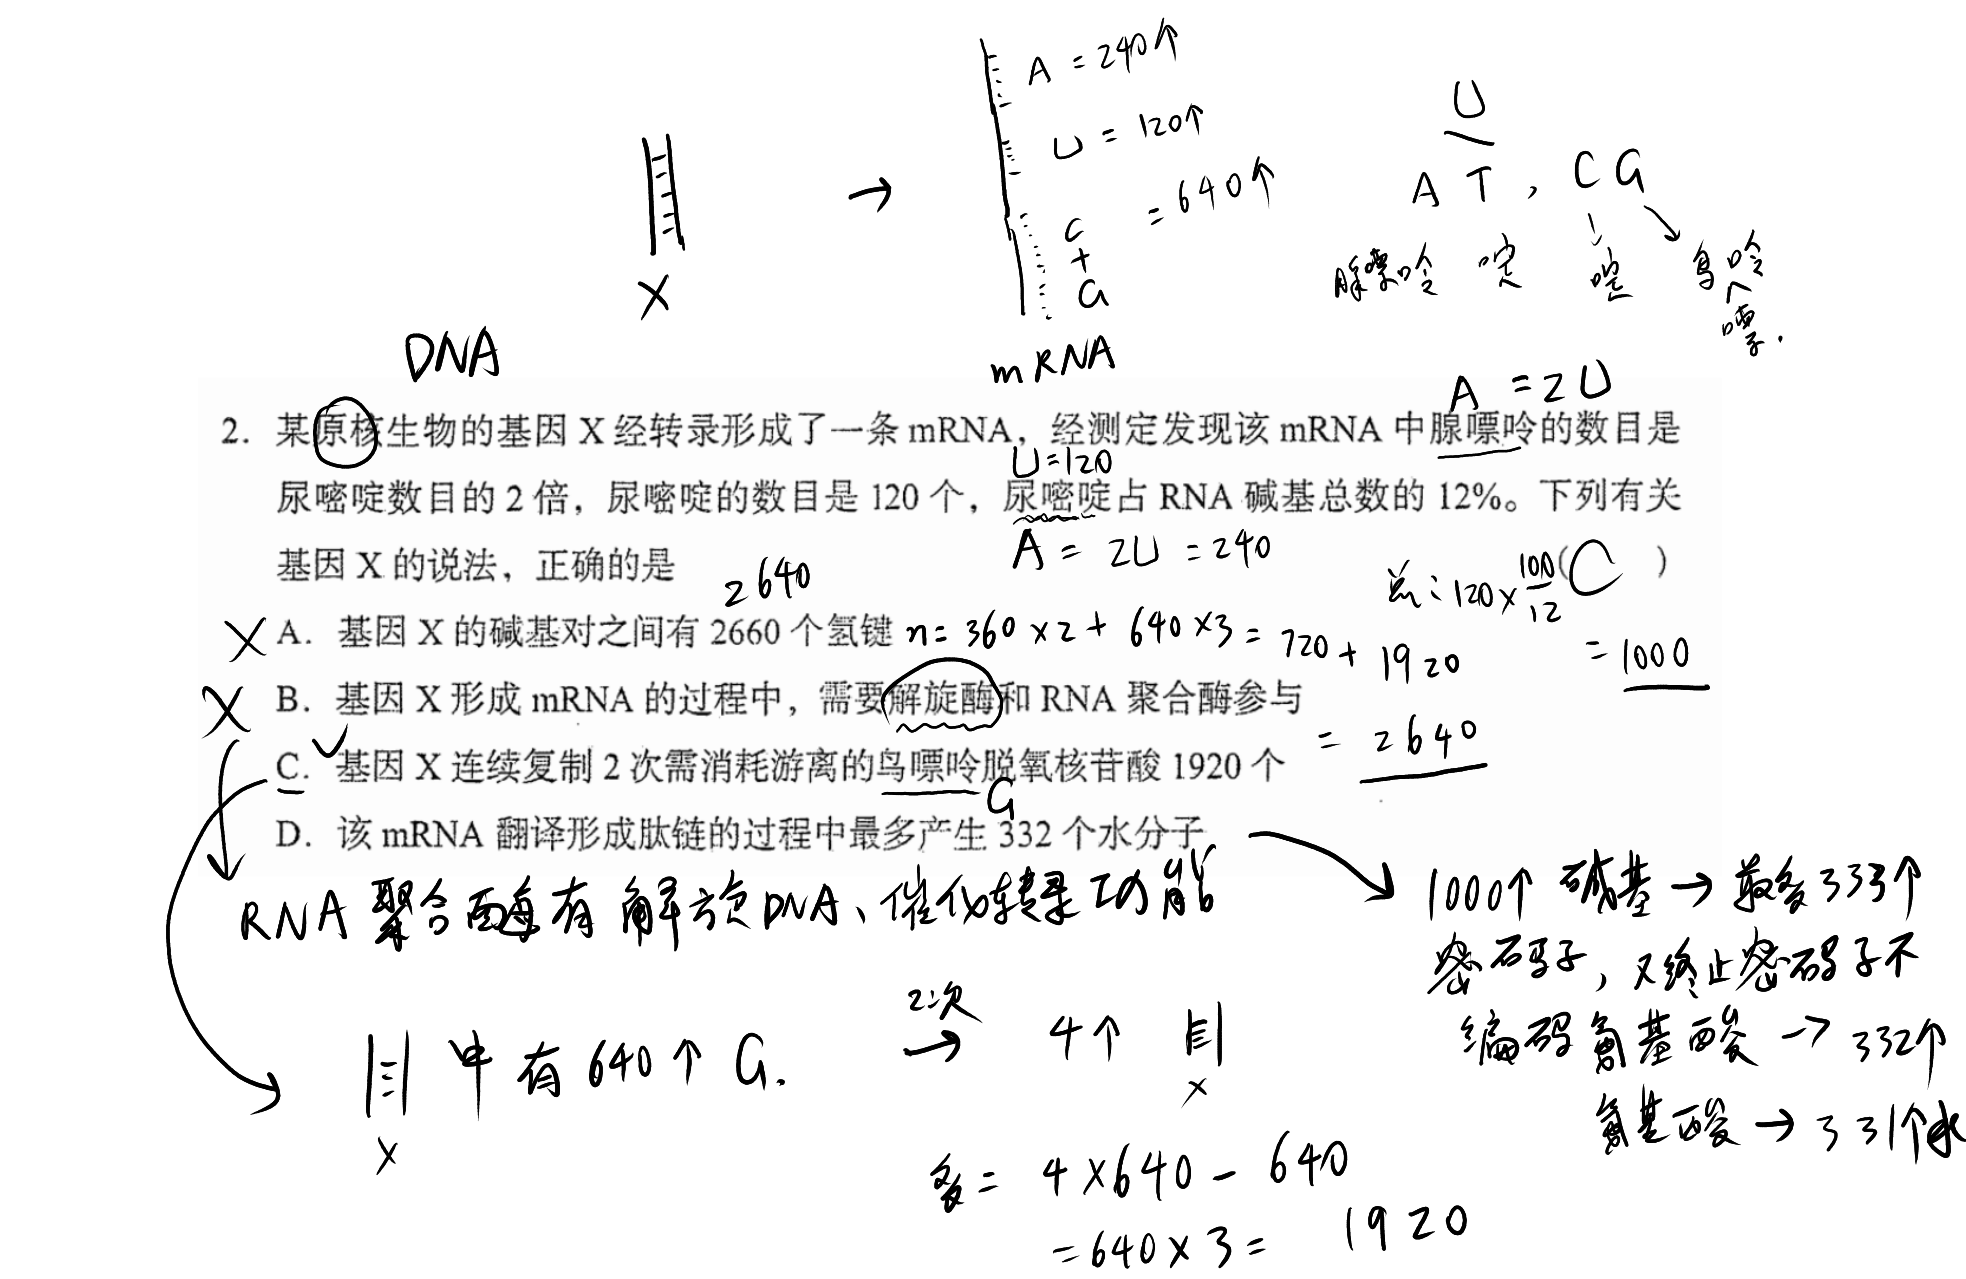 A = 240个
U = 120个
C + G = 640个
U
A T , C G
腺嘌呤 啶 啶 鸟呤
嘌
X
DNA
mRNA
A = 2U
2. 某原核生物的基因 X 经转录形成了一条 mRNA，经测定发现该 mRNA 中腺嘌呤的数目是
U=120
尿嘧啶数目的 2 倍，尿嘧啶的数目是 120 个，尿嘧啶占 RNA 碱基总数的 12%。下列有关
A = 2U = 240
基因 X 的说法，正确的是 ( C )
总: 120 × 100/12
= 1000
2640
X A. 基因 X 的碱基对之间有 2660 个氢键 n= 360 × 2 + 640 × 3 = 720 + 1920
= 2640
X B. 基因 X 形成 mRNA 的过程中，需要解旋酶和 RNA 聚合酶参与
C. 基因 X 连续复制 2 次需消耗游离的鸟嘌呤脱氧核苷酸 1920 个
G
D. 该 mRNA 翻译形成肽链的过程中最多产生 332 个水分子
RNA 聚合酶有解旋DNA、催化转录功能
1000个 碱基 → 最多333个
密码子，又终止密码子不
编码氨基酸 → 332个
氨基酸 → 331个水
中有 640个 G.
X
2次
→ 4个
X
= 4 × 640 - 640
= 640 × 3 = 1920